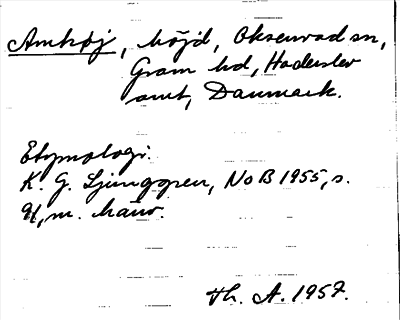 Amhøj, höjd, Oksenvad sn,
Gram hd, Haderslev
amt, Danmark.
Etymologi.
K. G. Ljunggren, NoB 1955, s.
91, m. hänv.
Th. A. 1957.